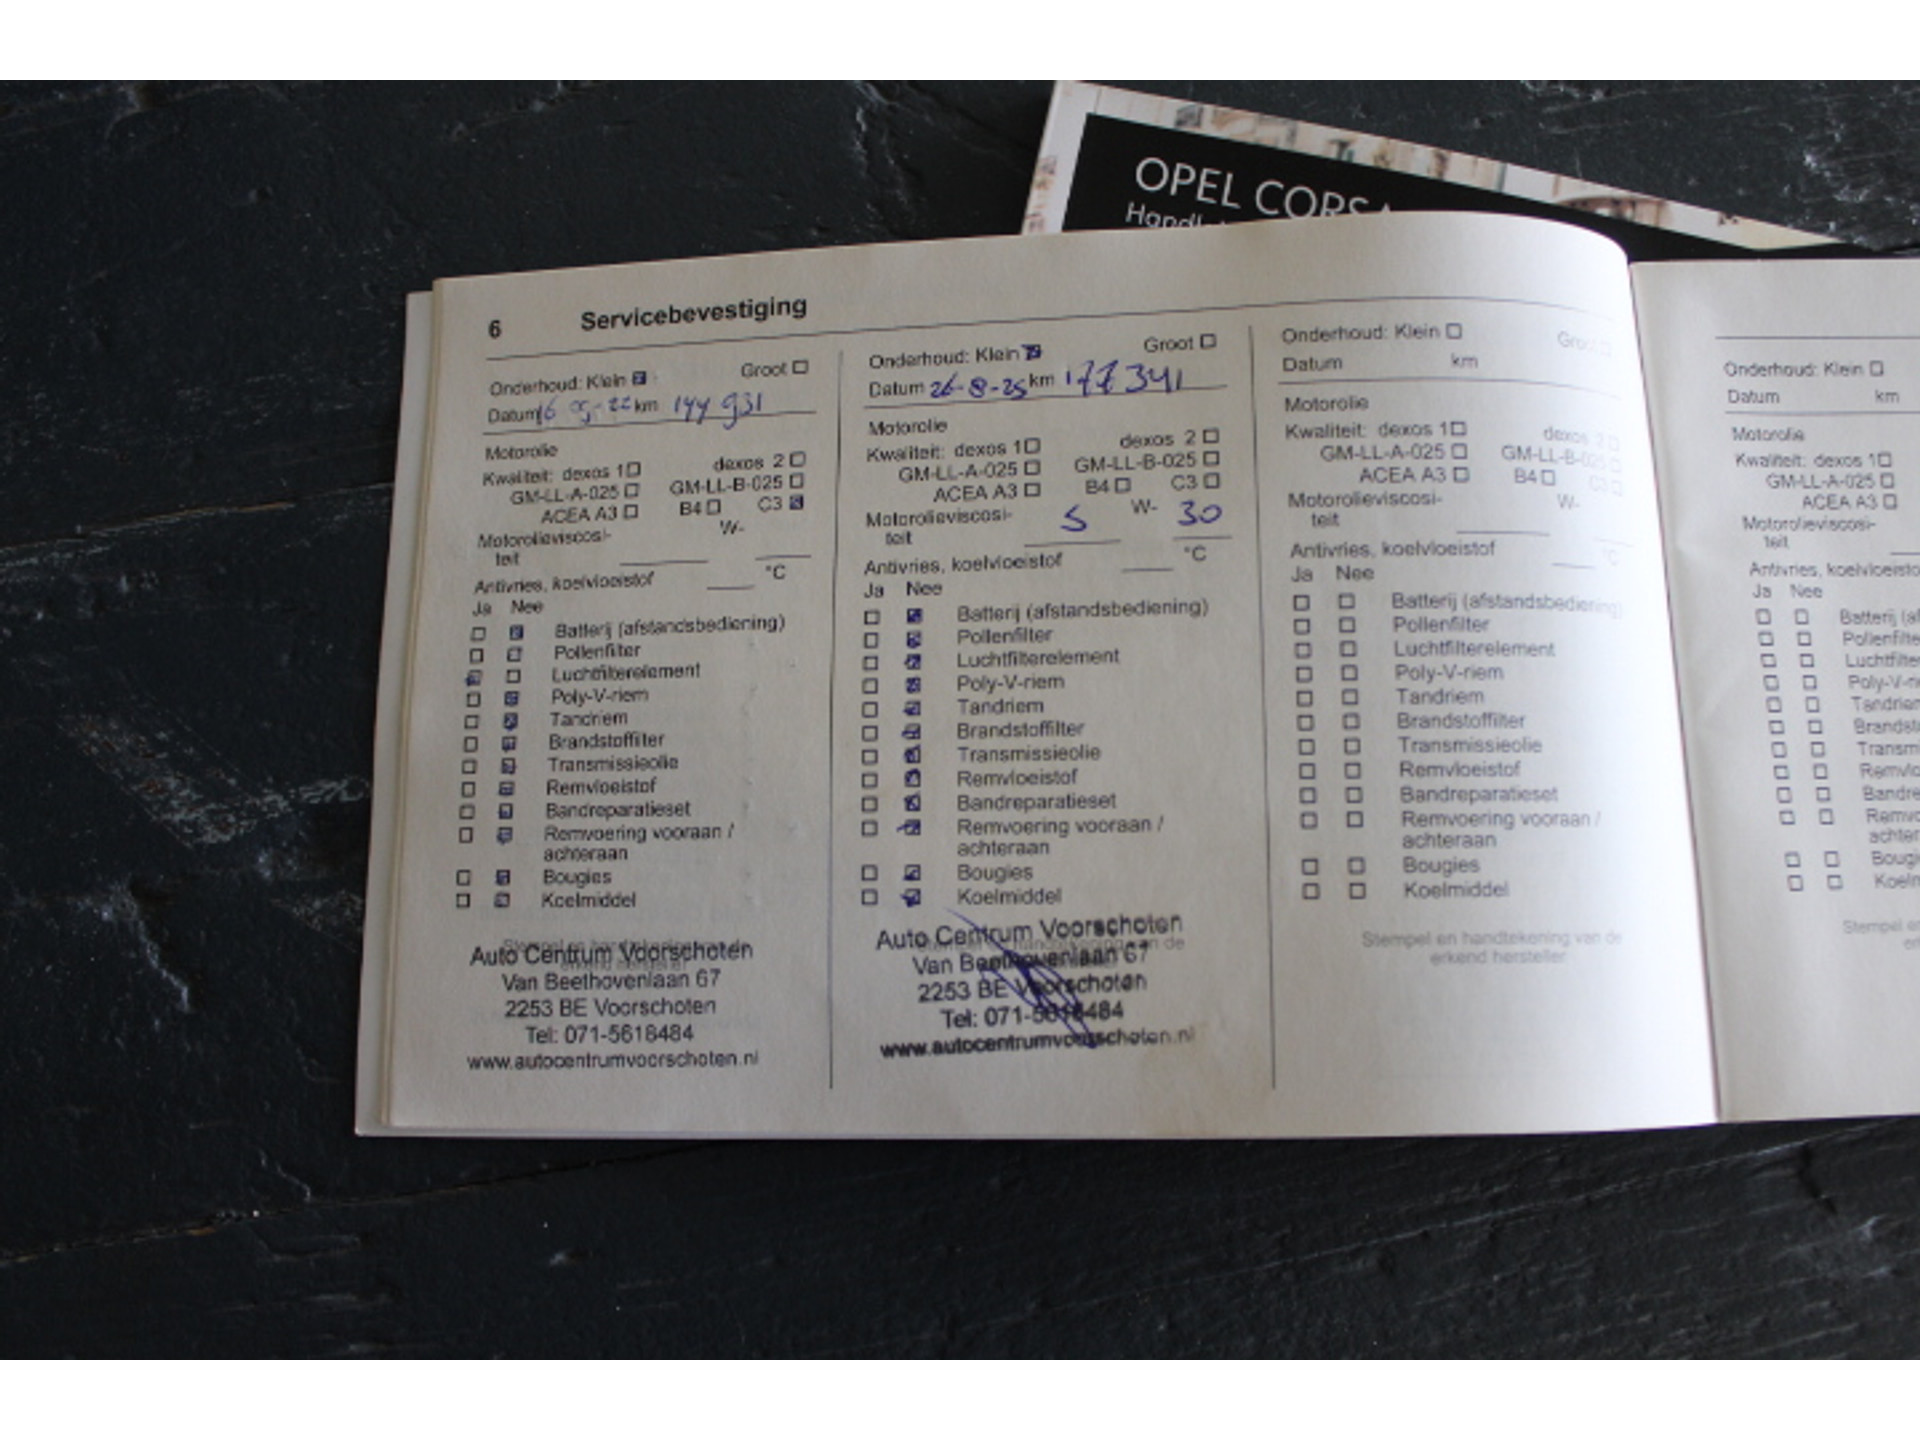 OPEL CORSA
6 Servicebevestiging
Onderhoud: Klein Groot
Datum 16 05-22 km 144 931
Motorolie
Kwaliteit: dexos 1 dexos 2
GM-LL-A-025 GM-LL-B-025
ACEA A3 B4 C3
Motorolieviscosi- W-
teit
Antivries, koelvloeistof °C
Ja Nee
Batterij (afstandsbediening)
Pollenfilter
Luchtfilterelement
Poly-V-riem
Tandriem
Brandstoffilter
Transmissieolie
Remvloeistof
Bandreparatieset
Remvoering vooraan /
achteraan
Bougies
Koelmiddel
Stempel en handtekening van de
erkend hersteller
Auto Centrum Voorschoten
Van Beethovenlaan 67
2253 BE Voorschoten
Tel: 071-5618484
www.autocentrumvoorschoten.nl
Onderhoud: Klein Groot
Datum 26-8-25 km 177341
Motorolie
Kwaliteit: dexos 1 dexos 2
GM-LL-A-025 GM-LL-B-025
ACEA A3 B4 C3
Motorolieviscosi- 5 W- 30
teit
Antivries, koelvloeistof °C
Ja Nee
Batterij (afstandsbediening)
Pollenfilter
Luchtfilterelement
Poly-V-riem
Tandriem
Brandstoffilter
Transmissieolie
Remvloeistof
Bandreparatieset
Remvoering vooraan /
achteraan
Bougies
Koelmiddel
Auto Centrum Voorschoten
handtekening van de
Van Beethovenlaan 67
2253 BE Voorschoten
Tel: 071-5618484
www.autocentrumvoorschoten.nl
Onderhoud: Klein Groot
Datum km
Motorolie
Kwaliteit: dexos 1 dexos 2
GM-LL-A-025 GM-LL-B-025
ACEA A3 B4 C3
Motorolieviscosi- W-
teit
Antivries, koelvloeistof °C
Ja Nee
Batterij (afstandsbediening)
Pollenfilter
Luchtfilterelement
Poly-V-riem
Tandriem
Brandstoffilter
Transmissieolie
Remvloeistof
Bandreparatieset
Remvoering vooraan /
achteraan
Bougies
Koelmiddel
Stempel en handtekening van de
erkend hersteller
Onderhoud: Klein
Datum km
Motorolie
Kwaliteit: dexos 1
GM-LL-A-025
ACEA A3
Motorolieviscosi-
teit
Antivries, koelvloeisto
Ja Nee
Batterij (af
Pollenfilte
Luchtfilte
Poly-V-ri
Tandriem
Brandst
Transm
Remvlo
Bandre
Remvo
achter
Bougi
Koelm
Stempel e